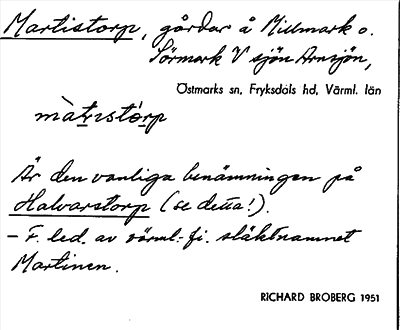 Martistorp, gårdar å Millmark o.
Sörmark V sjön Arnsjön,
Östmarks sn, Fryksdals hd, Värml. län
màtɪstórp
Är den vanliga benämningen på
Halvarstorp (se detta!).
– F. led. av värml.-fi. släktnamnet
Martinen.
RICHARD BROBERG 1951